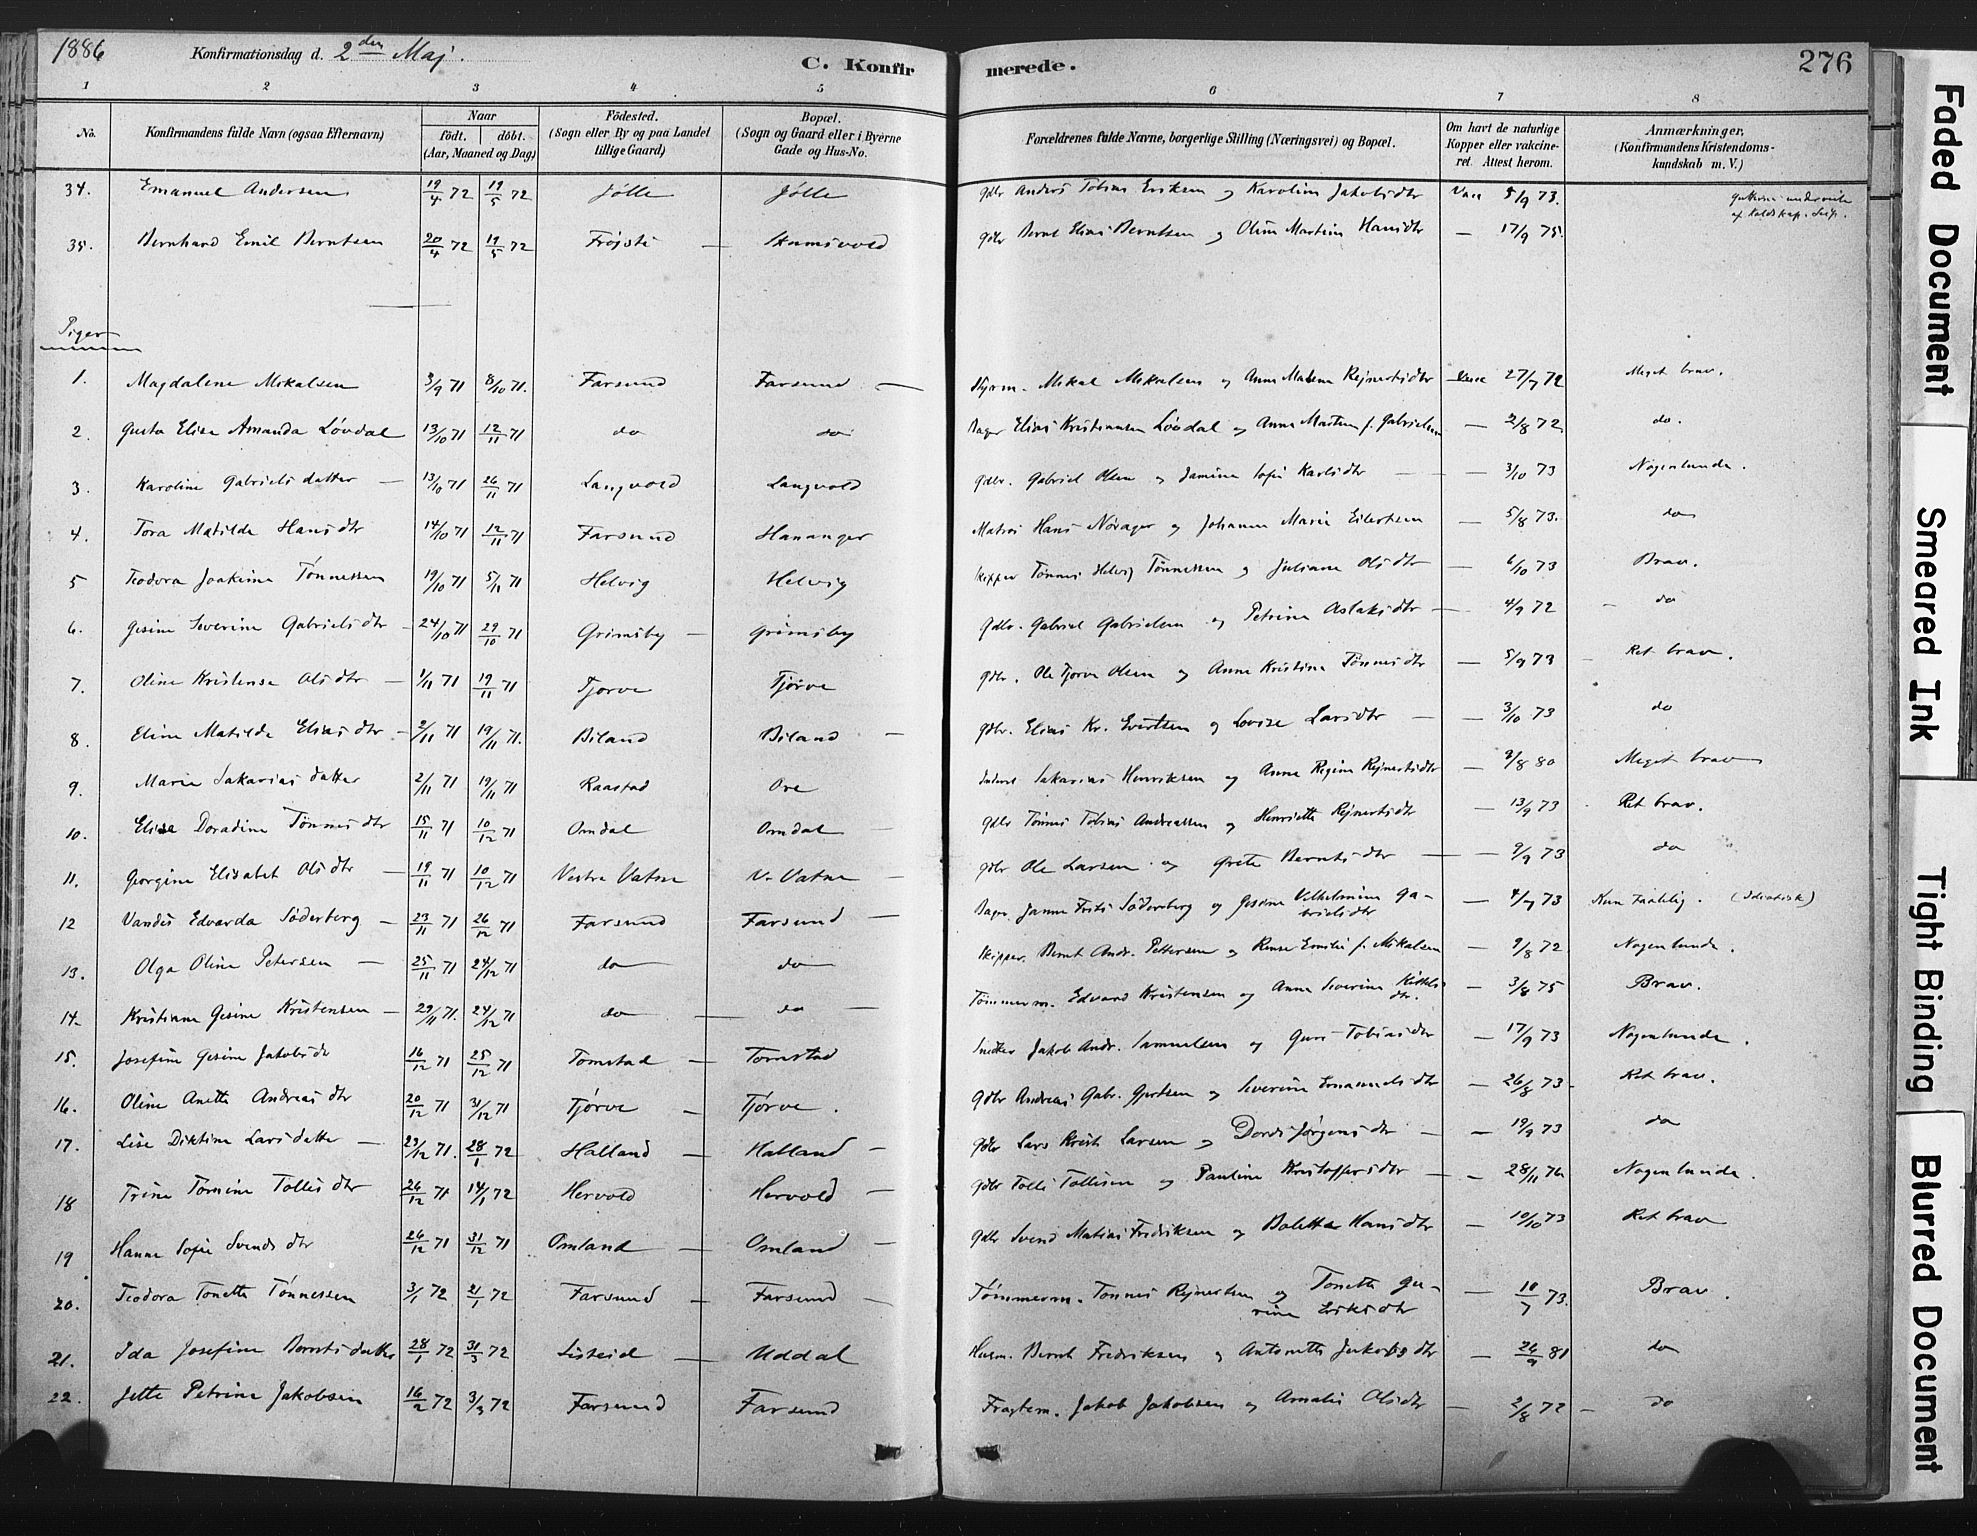 1886 Konfirmationsdag d. 2den Maj. C. Konfirmerede. 276
1 2 3 4 5 6 7 8
No. Konfirmandens fulde Navn (ogsaa Efternavn) Naar födt. döbt. (Aar, Maaned og Dag) Födested. (Sogn eller By og paa Landet tillige Gaard) Bopæl. (Sogn og Gaard eller i Byerne Gade og Hus-No. Forældrenes fulde Navne, borgerlige Stilling (Næringsvei) og Bopæl. Om havt de naturlige Kopper eller vaccineret. Attest herom. Anmærkninger, (Konfirmandens Kristendomskundskab m. V.)
34. Emanuel Andersen 19/4 72 19/5 72 Jölle Jölle Gdbr Anders Tobias Eriksen og Karoline Jakobsdtr Vacc 5/9 73.
35. Bernhard Emil Berntsen 20/4 72 19/5 72 — Gdbr Bernt Elias Berntsen og Oline Martine Hansdtr — 17/9 75.
Piger
1. Magdalene Mikalsen 3/9 71 8/10 71. Farsund Farsund — Styrm. Mikal Mikalsen og Anne Malena Rejnertsdtr Vacc 27/7 72 Meget brav.
2. Gusta Elisa Amanda Lövdal 13/10 71 12/11 71 do do Bager Elias Kristiansen Lövdal og Anne Marten f. Gabrielsen — 2/8 72. do.
3. Karoline Gabrielsdatter — 13/10 71 26/11 71 Langvold Langvold Gdbr. Gabriel Olsen og Jamine Sofie Karlsdtr — — 3/10 73 Nogenlunde.
4. Tora Matilda Hansdtr 14/10 71 12/11 71 Farsund Hananger Matros Hans Nörager og Johanne Marie Eilertsen — 5/8 73. do
5 Teodora Joakime Tönnessen 19/10 71 5/11 71 Helvig Helvig Skipper Tönnes Helvig Tönnessen og Juliane Olsdtr — 6/10 73 Brav.
6. Gesine Severine Gabrielsdtr — 24/10 71 29/10 71 Grimsby — Grimsby Gdbr. Gabriel Gabrielsen og Petrine Aslaksdtr — 4/9 72 — do
7. Oline Kristense Olsdtr — 1/11 71 19/11 71 Tjörve Tjörve Gdbr. Ole Tjörve Olsen og Anne Kristine Tönnesdtr — 5/9 73 — Ret brav.
8. Eline Matilde Eliasdtr — 2/11 71 19/11 71. Biland Biland — Gdbr. Elias Kr. Evertsen og Lovise Larsdtr — — 3/10 73 do
9. Marie Sakariasdatter 2/11 71 19/11 71 Raastad Ore Sakarias Henriksen og Anne Regine Rejnertsdtr — 9/8 80 Meget brav
10. Elise Doradine Tönnesdtr 15/11 71 10/12 71 Omdal Omdal — Gdbr Tönnes Tobias Andreassen og Henriette Rejnertsdtr — 13/9 73 Ret brav.
11. Georgine Elisabet Olsdtr — 19/11 71 10/12 71 Vestre Vatne V. Vatne — Gdbr Ole Larsen og Grete Berntsdtr — — 9/9 73 do
12 Vandis Edvarda Söderberg — 23/11 71 26/12 71 Farsund Farsund — Bager. Janne Frits Söderberg og Gesine Vilhelmine Gabrielsdtr — 4/7 73 Kun taalelig. (Idiotisk)
13. Olga Oline Petersen — 25/11 71 24/12 71 do do Skipper. Bernt Andr. Pettersen og Emilie f. Mikalsen — 9/8 72 Nogenlunde.
14. Kristiane Gesine Kristensen — 29/11 71. 24/12 71 do — do — Tömmerm. Edvard Kristensen og Anne Severine Kittelsdtr. — 3/8 75 Brav.
15. Josefine Gesine Jakobsdtr 16/12 71 25/12 71 Tomstad — Tomstad Snedker Jakob Andr. Samuelsen og Guro Tobiasdtr — 17/9 73 Nogenlunde.
16. Oline Anette Andreasdtr 20/12 71 31/12 71 Tjörve — Tjörve. Gdbr Andreas Gabr. Gjertsen og Severine Emanuelsdtr — 26/8 73 — Ret brav.
17. Lise Diktine Larsdatter — 23/12 71. 28/1 72 Halland — Halland — Gdbr Lars Krist Larsen og Dordi Jörgensdtr — — 19/9 73 do
18 Trine Tomine Tollisdtr 26/12 71 14/1 72 Hervold Hervold — Gdbr Tolli Tollisen og Pauline Kristoffersdtr — — 28/11 76 Nogenlunde.
19 Hanne Sofie Svendsdtr 26/12 71 31/12 71 Omland — Omland — Gdbr Svend Matias Fredriksen og Bolette Hansdtr — 10/10 73 Ret brav
20. Teodora Tonette Tönnessen 3/1 72 21/1 72 Farsund — Farsund — Tömmerm. Tönnes Rejnertsen og Tonette Gurine Eriksdtr — 10/7 73. Brav.
21. Ida Josefine Berntsdatter 28/1 72 31/3 72 Listeid — Uddal Husm. Bernt Fredriksen og Antonette Jakobsdtr — 26/9 81 do
22. Jette Petrine Jakobsen 16/2 72 3/3 72 Farsund Farsund Fragtem. Jakob Jakobsen og Amalie Olsdtr — 2/8 72 — do
Faded Document
Smeared Ink
Tight Binding
Blurred Document